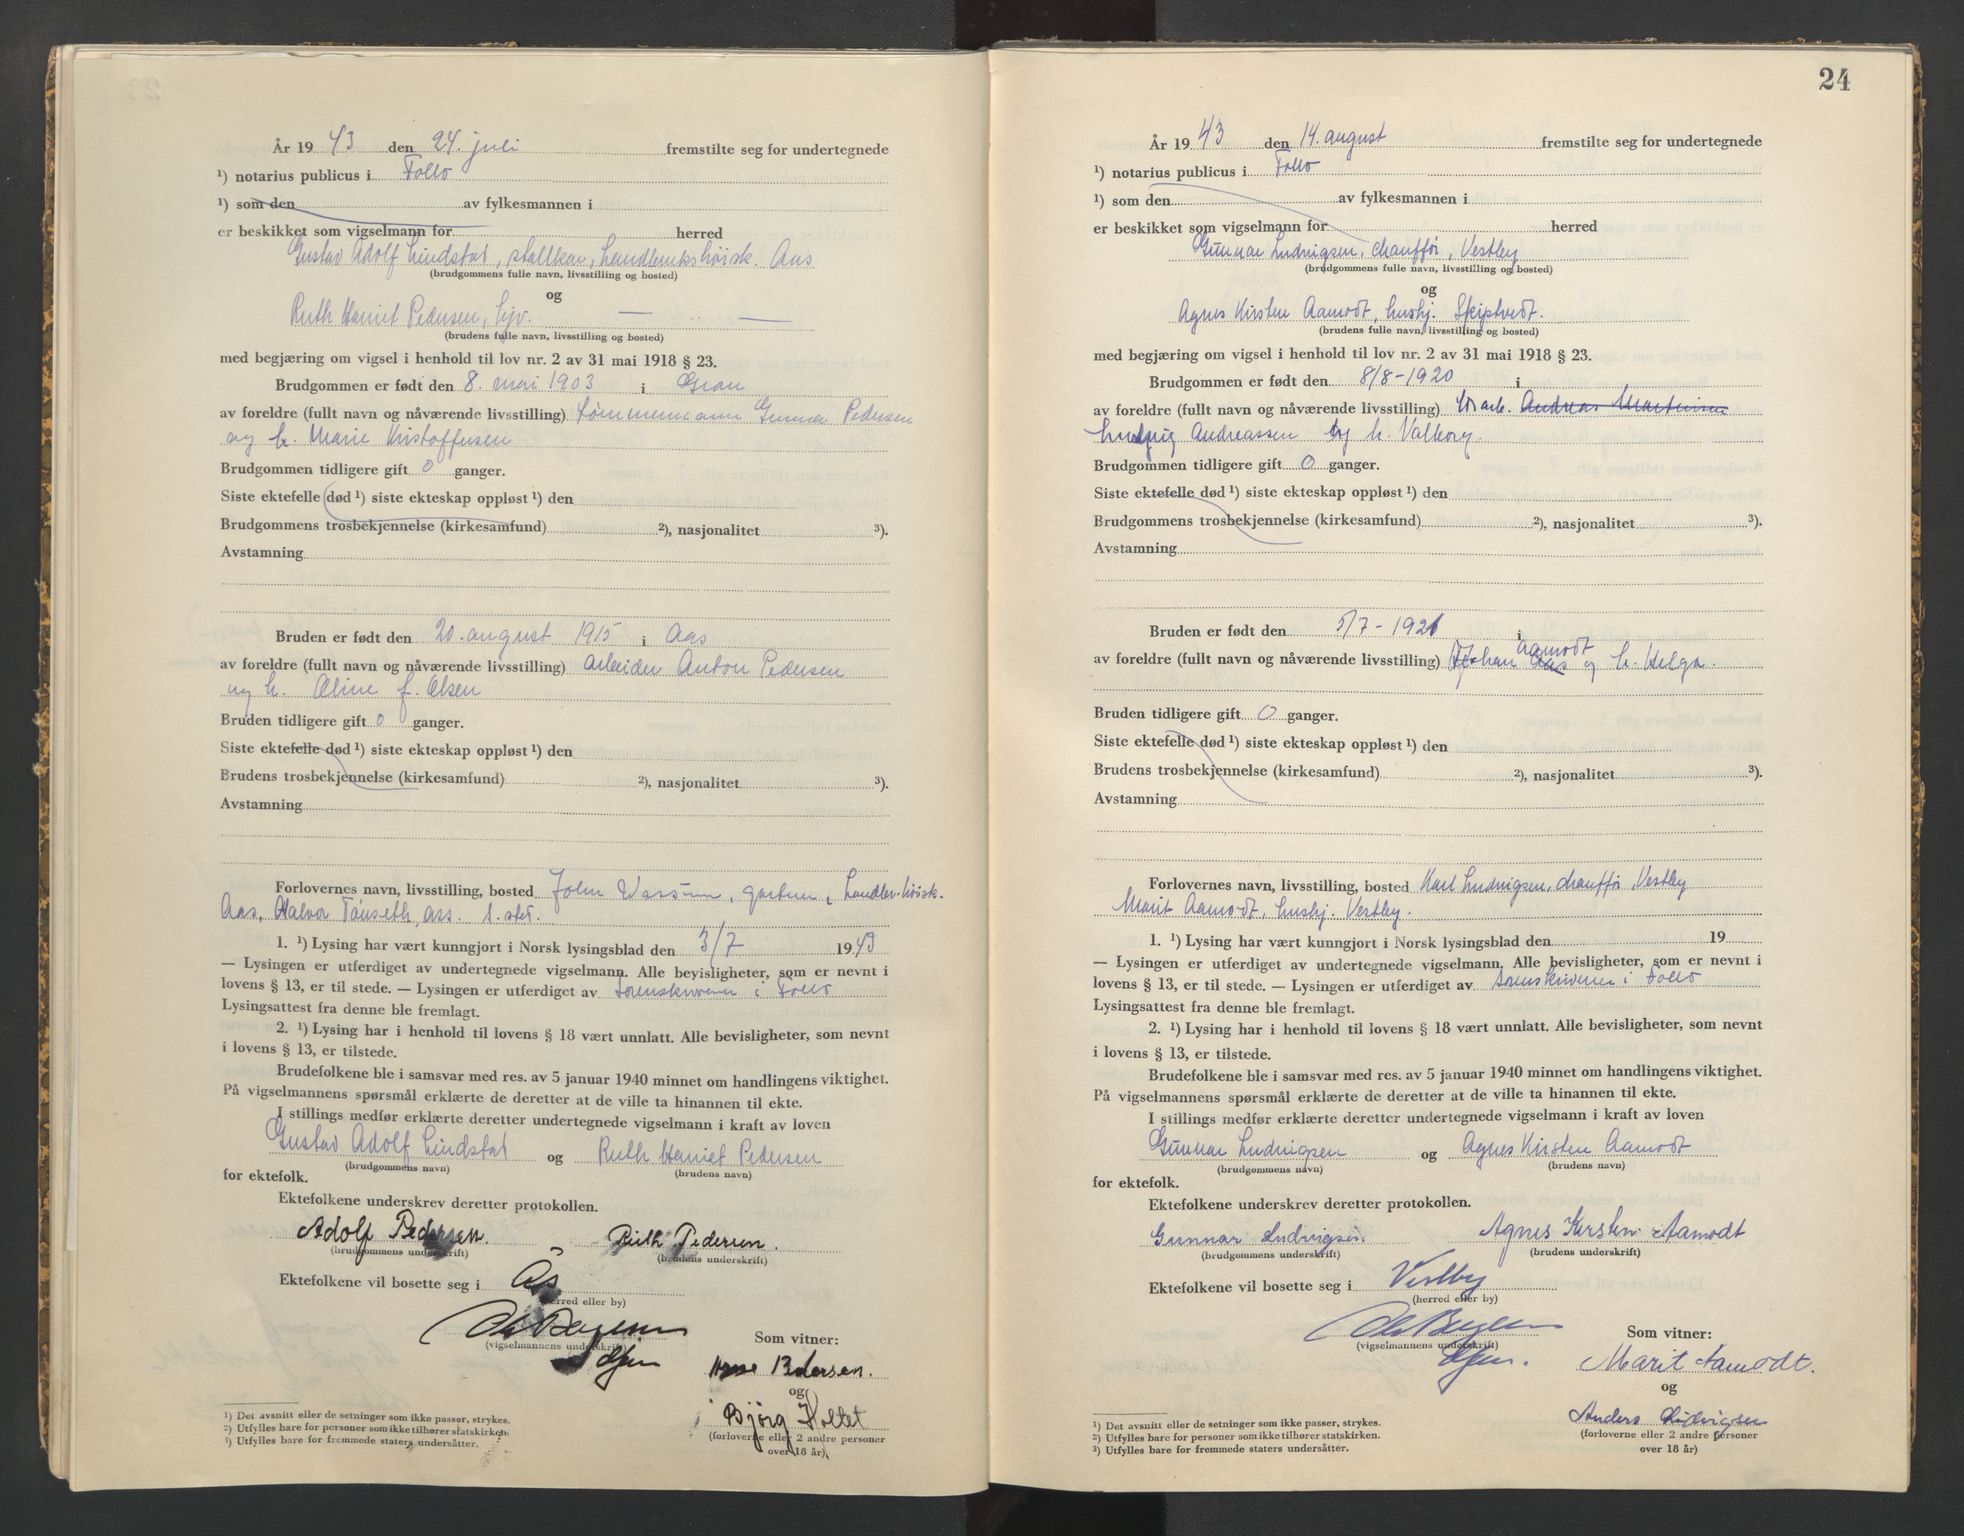 År 19 43 den 24. juli fremstilte seg for undertegnede
¹) notarius publicus i Follo
¹) som den av fylkesmannen i
er beskikket som vigselmann for herred
Gustav Adolf Lindstad, stallkar, Landbrukshøisk. Aas
(brudgommens fulle navn, livsstilling og bosted)
og
Ruth Harriet Pedersen, hjv. — " —
(brudens fulle navn, livsstilling og bosted)
med begjæring om vigsel i henhold til lov nr. 2 av 31 mai 1918 § 23.
Brudgommen er født den 8. mai 1903 i Gran
av foreldre (fullt navn og nåværende livsstilling) tømmermann Gunnar Pedersen
og h. Marie Kristoffersen
Brudgommen tidligere gift 0 ganger.
Siste ektefelle død ¹) siste ekteskap oppløst ¹) den
Brudgommens trosbekjennelse (kirkesamfund) ²), nasjonalitet ³).
Avstamning
Bruden er født den 20. august 1915 i Aas
av foreldre (fullt navn og nåværende livsstilling) arbeider Anton Pedersen
og h. Oline f. Olsen
Bruden tidligere gift 0 ganger.
Siste ektefelle død ¹) siste ekteskap oppløst ¹) den
Brudens trosbekjennelse (kirkesamfund) ²), nasjonalitet ³).
Avstamning
Forlovernes navn, livsstilling, bosted John gartner, Landbr.høisk.
Aas, Halvor Tønseth, ass. s. sted.
1. ¹) Lysing har vært kunngjort i Norsk lysingsblad den 3/7 1943
— Lysingen er utferdiget av undertegnede vigselmann. Alle bevisligheter, som er nevnt i
lovens § 13, er til stede. — Lysingen er utferdiget av Sorenskriveren i Follo
Lysingsattest fra denne ble fremlagt.
2. ¹) Lysing har i henhold til lovens § 18 vært unnlatt. Alle bevisligheter, som nevnt
i lovens § 13, er tilstede.
Brudefolkene ble i samsvar med res. av 5 januar 1940 minnet om handlingens viktighet.
På vigselmannens spørsmål erklærte de deretter at de ville ta hinannen til ekte.
I stillings medfør erklærte deretter undertegnede vigselmann i kraft av loven
Gustav Adolf Lindstad og Ruth Harriet Pedersen
(brudgommens navn) (brudens navn)
for ektefolk.
Ektefolkene underskrev deretter protokollen.
Adolf Pedersen. Ruth Pedersen.
(brudgommens underskrift) (brudens underskrift)
Ektefolkene vil bosette seg i Ås
(herred eller by)
(vigselmannens underskrift)
Som vitner:
Pedersen.
og
Bjørg Holtet
(forloverne eller 2 andre personer
over 18 år)
¹) Det avsnitt eller de setninger som ikke passer, strykes.
²) Utfylles bare for personer som ikke tilhører statskirken.
³) Utfylles bare for fremmede staters undersåtter.
24
År 19 43 den 14. august fremstilte seg for undertegnede
¹) notarius publicus i Follo
¹) som den av fylkesmannen i
er beskikket som vigselmann for herred
Gunnar Ludvigsen, chauffør, Vestby
(brudgommens fulle navn, livsstilling og bosted)
og
Agnes Kirsten Aamodt, hushj. Skiptvedt.
(brudens fulle navn, livsstilling og bosted)
med begjæring om vigsel i henhold til lov nr. 2 av 31 mai 1918 § 23.
Brudgommen er født den 8/8 - 1920 i
av foreldre (fullt navn og nåværende livsstilling) arb. Andreas Martinsen
Ludvig Andreassen og h. Valborg.
Brudgommen tidligere gift 0 ganger.
Siste ektefelle død ¹) siste ekteskap oppløst ¹) den
Brudgommens trosbekjennelse (kirkesamfund) ²), nasjonalitet ³).
Avstamning
Bruden er født den 5/7 - 1921 i
av foreldre (fullt navn og nåværende livsstilling) Johan Aas Aamodt og h. Helga.
Bruden tidligere gift 0 ganger.
Siste ektefelle død ¹) siste ekteskap oppløst ¹) den
Brudens trosbekjennelse (kirkesamfund) ²), nasjonalitet ³).
Avstamning
Forlovernes navn, livsstilling, bosted Karl Ludvigsen, chauffør, Vestby
Marit Aamodt, hushj. Vestby.
1. ¹) Lysing har vært kunngjort i Norsk lysingsblad den 19
— Lysingen er utferdiget av undertegnede vigselmann. Alle bevisligheter, som er nevnt i
lovens § 13, er til stede. — Lysingen er utferdiget av sorenskriveren i Follo
Lysingsattest fra denne ble fremlagt.
2. ¹) Lysing har i henhold til lovens § 18 vært unnlatt. Alle bevisligheter, som nevnt
i lovens § 13, er tilstede.
Brudefolkene ble i samsvar med res. av 5 januar 1940 minnet om handlingens viktighet.
På vigselmannens spørsmål erklærte de deretter at de ville ta hinannen til ekte.
I stillings medfør erklærte deretter undertegnede vigselmann i kraft av loven
Gunnar Ludvigsen og Agnes Kirsten Aamodt
(brudgommens navn) (brudens navn)
for ektefolk.
Ektefolkene underskrev deretter protokollen.
Gunnar Ludvigsen. Agnes Kirsten Aamodt
(brudgommens underskrift) (brudens underskrift)
Ektefolkene vil bosette seg i Vestby
(herred eller by)
(vigselmannens underskrift)
Som vitner:
Marit Aamodt.
og
Anders Ludvigsen
(forloverne eller 2 andre personer
over 18 år)
¹) Det avsnitt eller de setninger som ikke passer, strykes.
²) Utfylles bare for personer som ikke tilhører statskirken.
³) Utfylles bare for fremmede staters undersåtter.